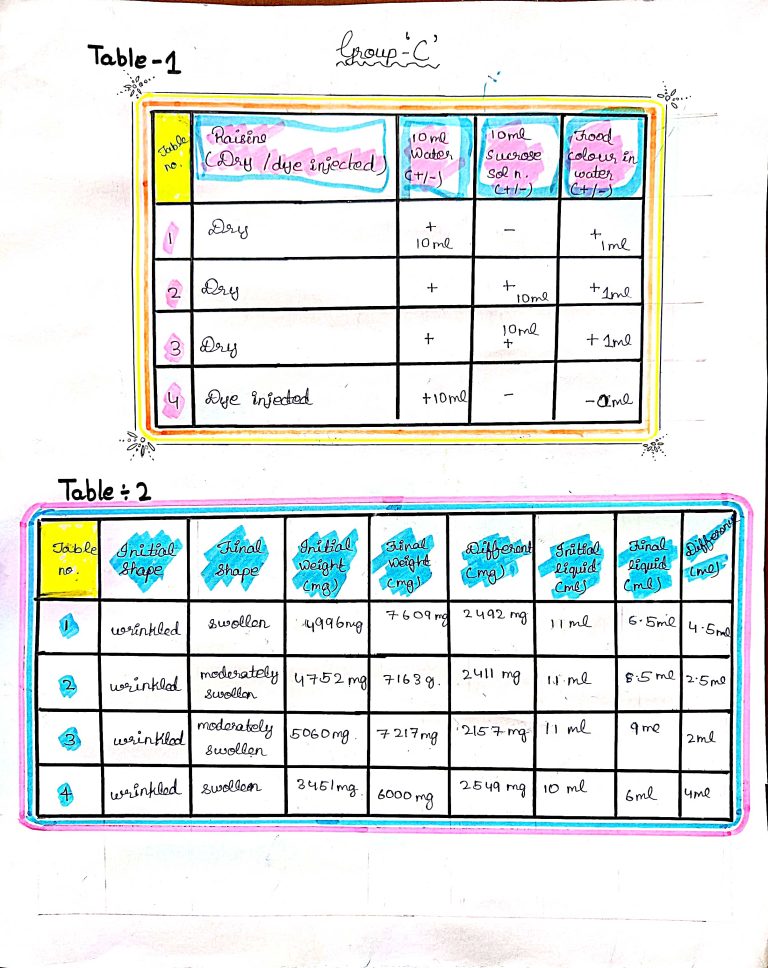 Group-'C'
Table-1
Table no. Raisins (Dry / dye injected) 10ml Water (+/-) 10ml Sucrose soln. (+/-) Food colour in water (+/-)
1 Dry + 10ml - + 1ml
2 Dry + + 10ml +1ml
3 Dry + 10ml + +1ml
4 Dye injected +10ml - - ml
Table ÷ 2
Table no. Initial Shape Final Shape Initial Weight (mg) Final Weight (mg) Different (mg) Initial liquid (ml) Final liquid (ml) Difference (ml)
1 wrinkled swollen 4996mg 7609mg 2492 mg 11 ml 4.5ml
2 wrinkled moderately swollen 4752 mg 7163g. 2411 mg 11 ml 8.5 ml 2.5ml
3 wrinkled moderately swollen 5060mg. 7217mg 2157 mg 11 ml 9ml 2ml
4 wrinkled swollen 3451mg. 6000mg 2549 mg 10 ml 6ml 4ml